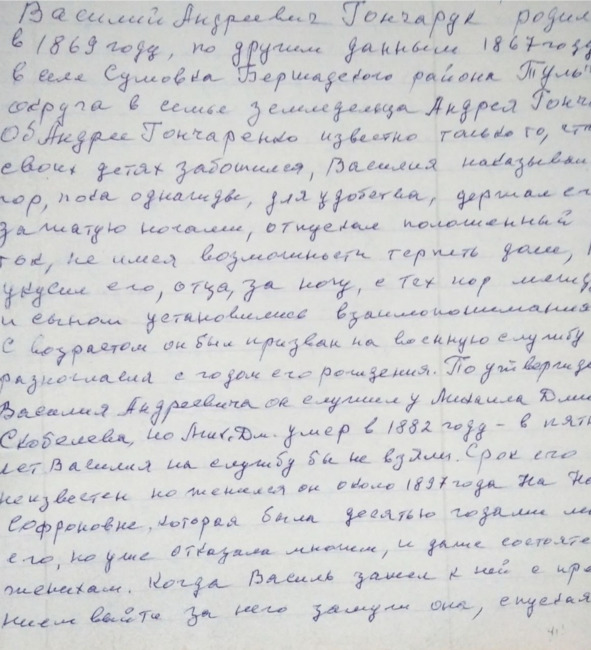 Василий Андреевич Гончарук родил
в 1869 году, по другим данным 1867 году
в селе Сумовка Бершадского района Туль
округа в семье земледельца Андрея Гонч
Об Андрее Гончаренко известно только то, чт
своих детях заботился, Василия наказывал
пор, пока однажды, для удобства, держал ег
зажатую ногами, отпускал положенный
ток, не имея возможности терпеть даже,
укусил его, отца, за ногу, с тех пор между
и сыном установились взаимопонимания
С возрастом он был призван на военную службу
разногласия с годом его рождения. По утвержде
Василия Андреевича он служил у Михаила Дми
Скобелева, но Мих. Дм. умер в 1882 году – в пятн
лет Василия на службу бы не взяли. Срок его
неизвестен но женился он около 1897 года На На
Софроновне, которая была десятью годами мл
его, но уже отказала многим, и даже состояте
женихам. Когда Василь зашел к ней с пре
нием выйти за него замуж она, спуская